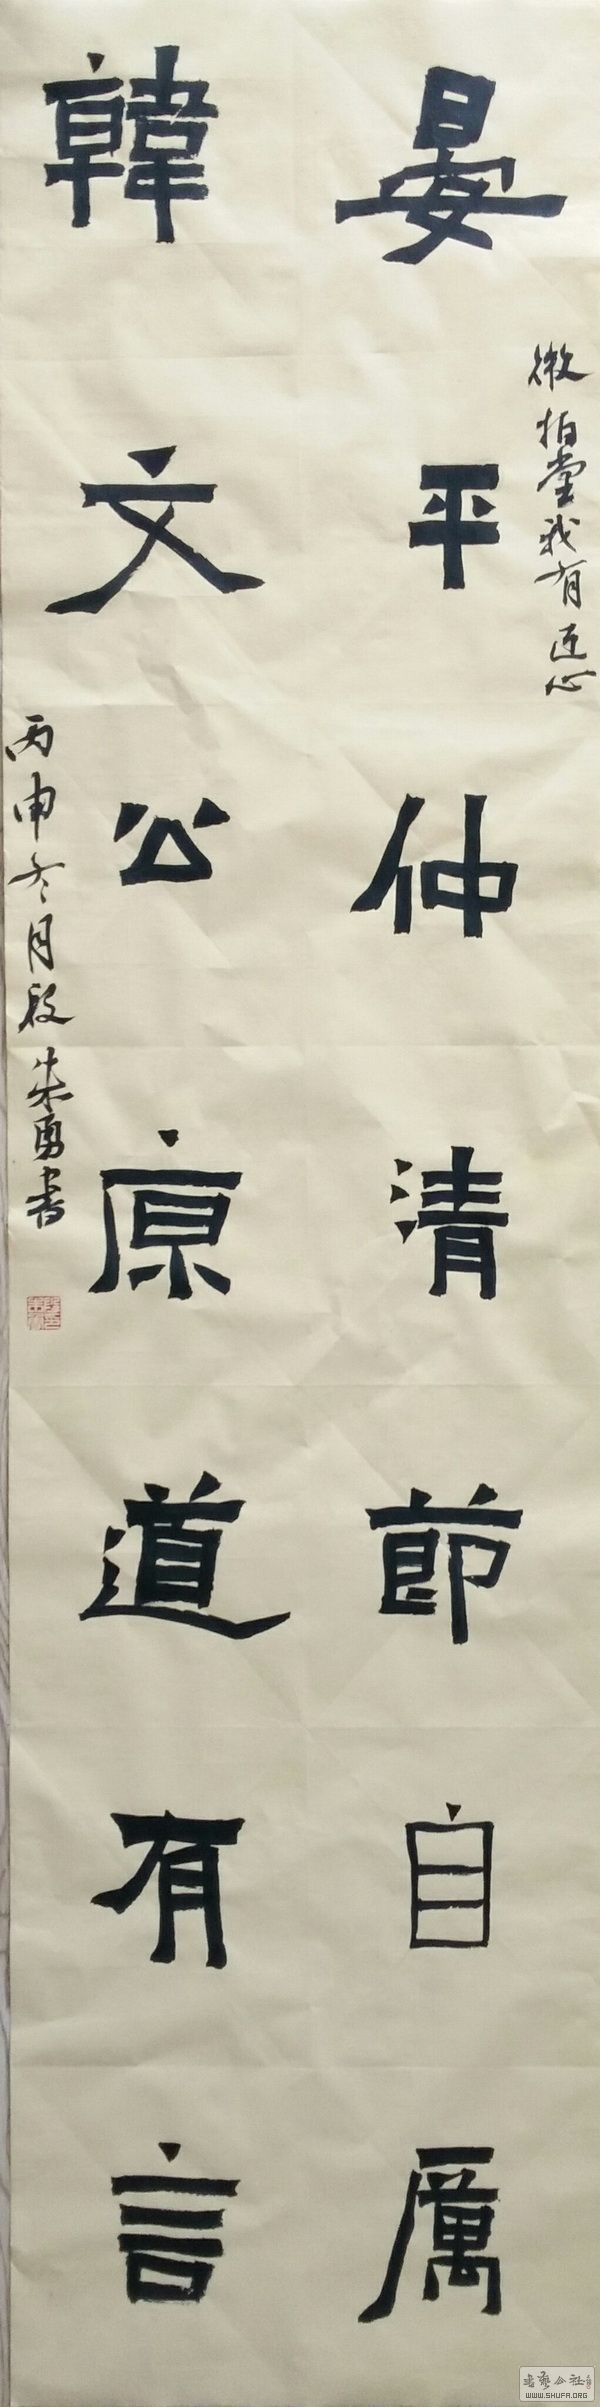 微拍堂我有匠心
晏平仲清節自厲
韓文公原道有言
丙申冬月段朱勇書
書法公社
WWW.SHUFA.ORG